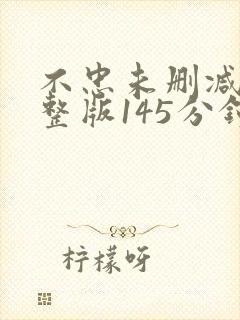 不忠未删减
整版145分钟
柠檬呀